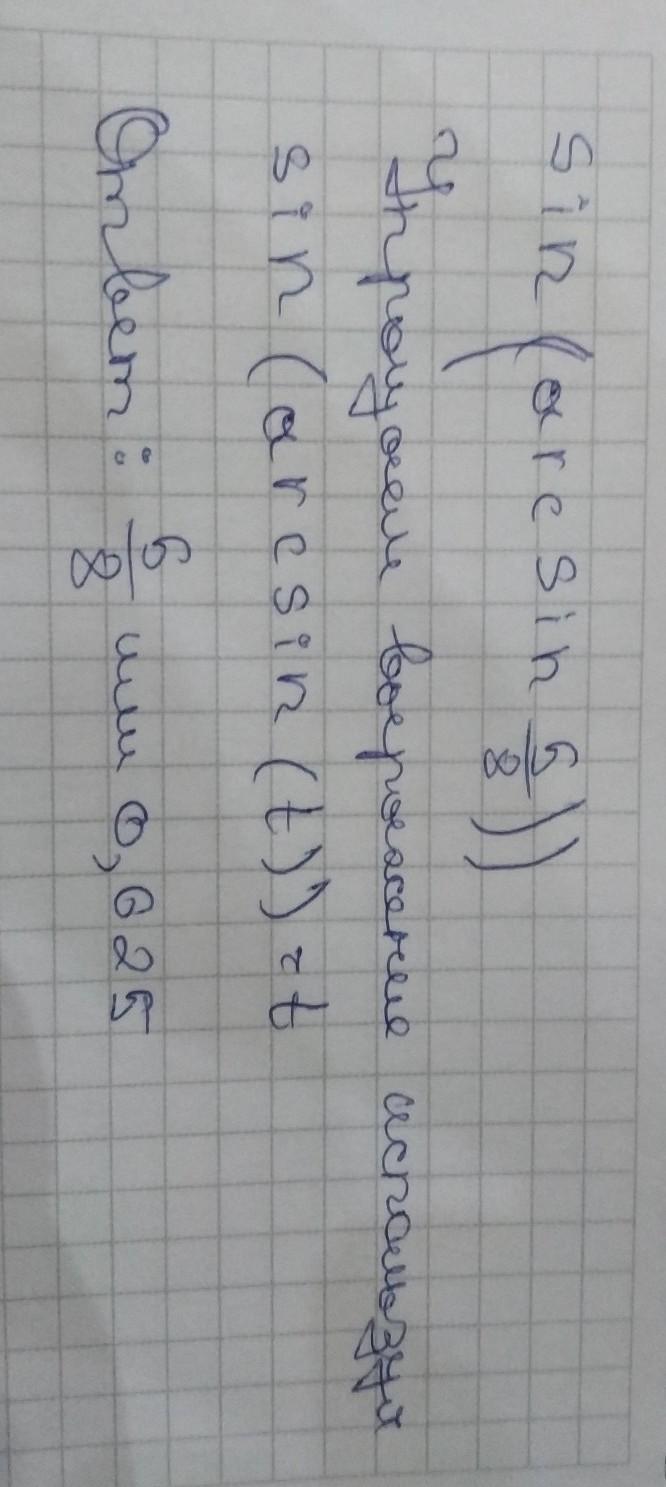 sin(arcsin 5/8))
Упрощаем выражение используя
sin(arcsin(t))=t
Ответ: 5/8 или 0,625